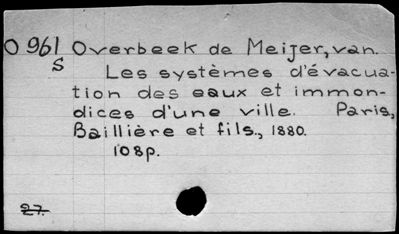 O 961 Overbeek de Meijer, van.
S
Les systèmes d'évacua-
tion des eaux et immon-
dices d'une ville. Paris,
Baillière et fils., 1880.
108p.
27.